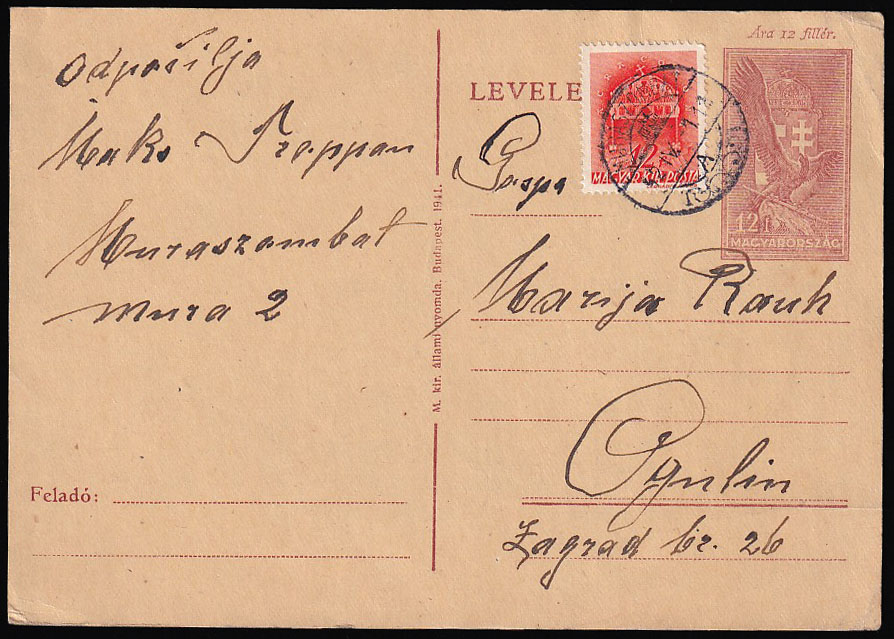 Odpošilja
Maks Troppan
Muraszombat
Mura 2
Feladó:
M. kir. állami nyomda. Budapest. 1941.
Ára 12 fillér.
LEVELE
12
MAGYAR KIR. POSTA
12 f
MAGYARORSZÁG
Gospa
Marija Rauh
Ogulin
Zagrad br. 26